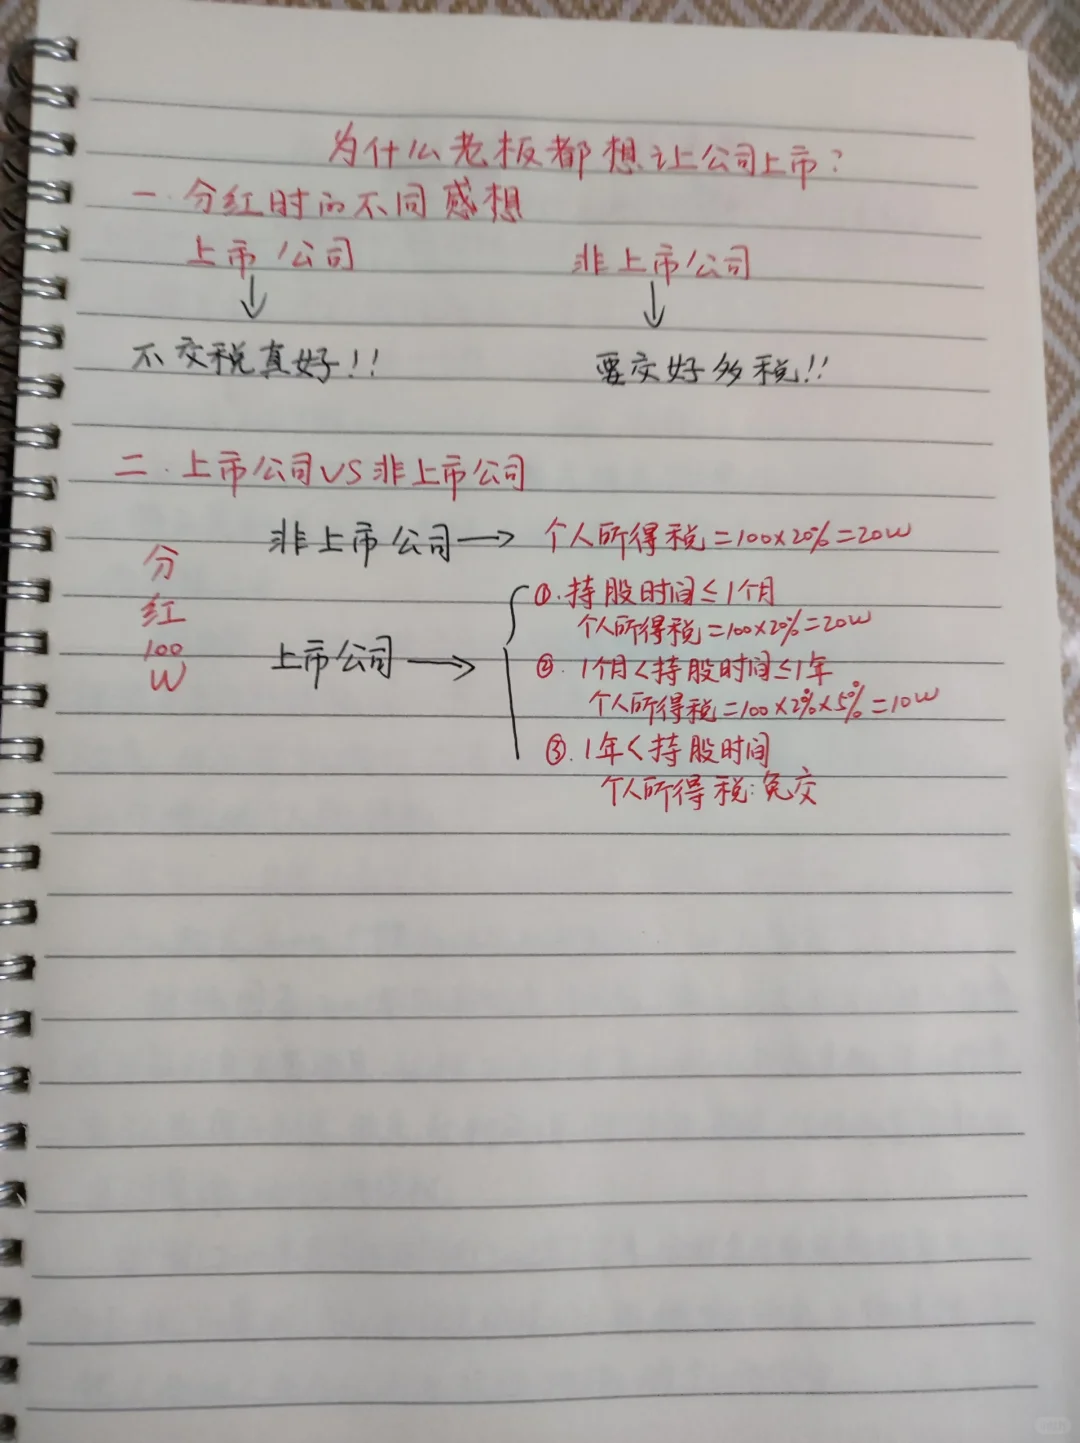 为什么老板都想让公司上市?
一.分红时的不同感想
上市公司 非上市公司
↓ ↓
不交税真好!! 要交好多税!!
二.上市公司VS非上市公司
分红100W
非上市公司→个人所得税=100×20%=20W
上市公司→
①.持股时间≤1个月
个人所得税=100×20%=20W
②.1个月<持股时间≤1年
个人所得税=100×2%×5%=10W
③.1年<持股时间
个人所得税:免交